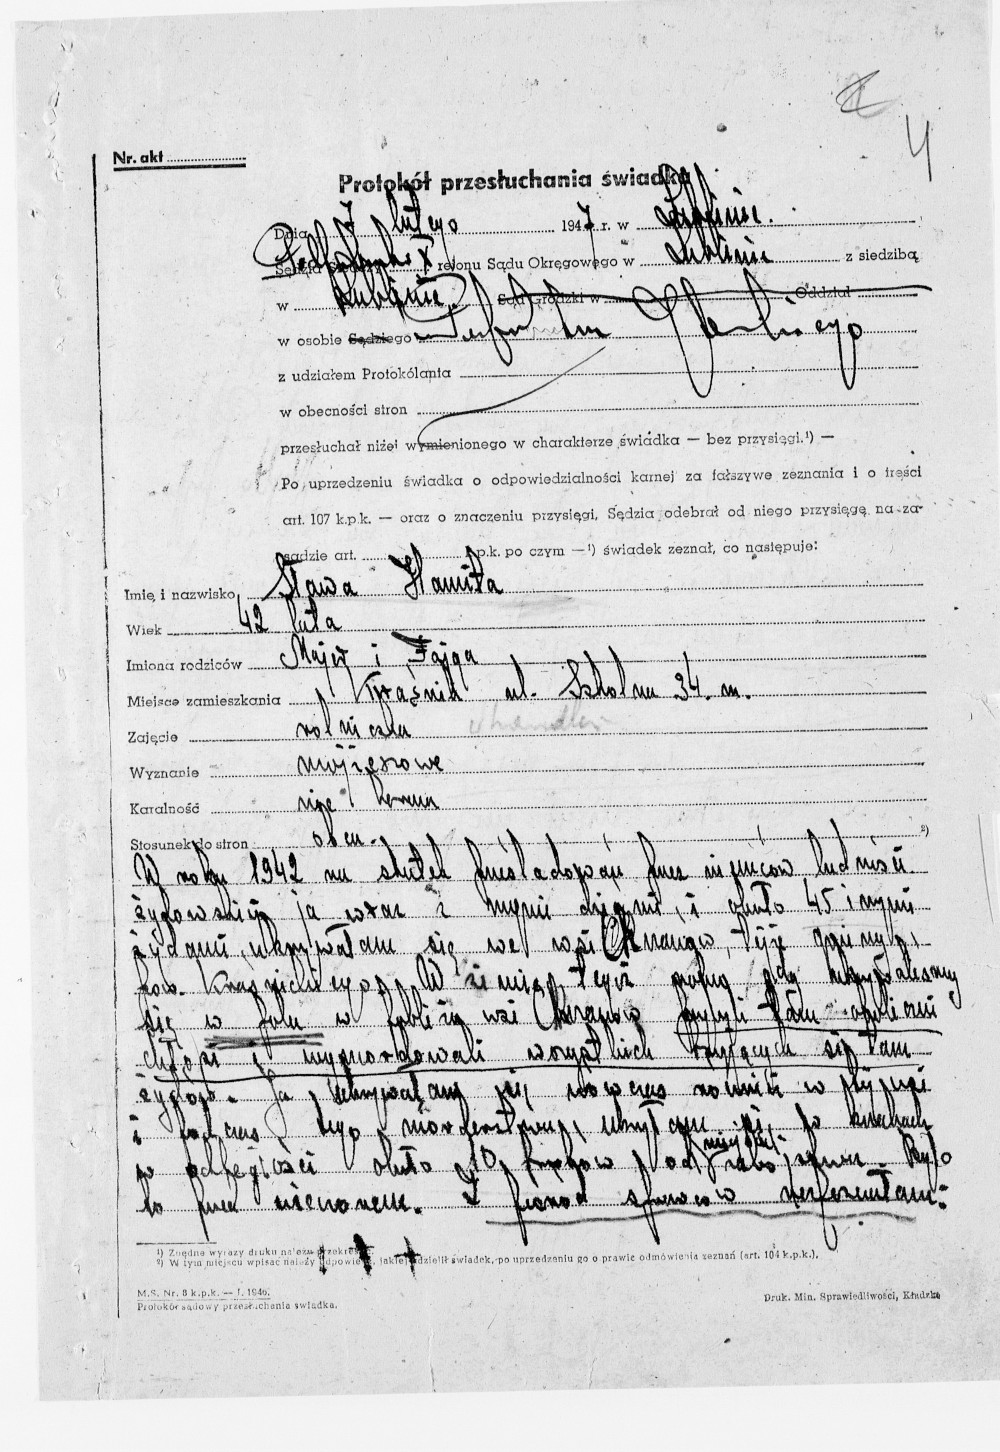 4
Nr. akt
Protokół przesłuchania świadka
Dnia 7 lutego 1947 r. w Lublinie.
Sędzia Śledczy X rejonu Sądu Okręgowego w Lublinie z siedzibą
w Lublinie Sąd Grodzki w Oddział
w osobie Sędziego
z udziałem Protokólanta
w obecności stron
przesłuchał niżej wymienionego w charakterze świadka — bez przysięgi.¹) —
Po uprzedzeniu świadka o odpowiedzialności karnej za fałszywe zeznania i o treści
art. 107 k.p.k. — oraz o znaczeniu przysięgi, Sędzia odebrał od niego przysięgę na za-
sadzie art. k.p.k. po czym —¹) świadek zeznał, co następuje:
Imię i nazwisko Sława
Wiek 42 lata
Imiona rodziców Majer i Fajga
Miejsce zamieszkania Kraśnik ul. Szkolna 34. m.
Zajęcie rolniczka
Wyznanie mojżeszowe
Karalność nie karana
Stosunek do stron obca. ²)
W roku 1942 na skutek prześladowań przez niemców ludności
żydowskiej ja wraz z mymi dziećmi, i około 45 innymi
żydami, ukrywałam się we wsi Chranów, tejże gminy,
pow. Kraśnickiego. W zimie tegoż roku gdy ukrywaliśmy
się w polu w pobliżu wsi Chranów przybyli tam okoliczni
chłopi i wymordowali wszystkich kryjących się tam
żydów. Ja ukrywałam się wówczas również w
i podczas tego morderstwa, ukryłam się po
w odległości około 10 kroków od miejsca Było
to pod wieczorem. Z pośród sprawców rozpoznałam:
¹) Zbędne wyrazy druku należy przekreślić.
²) W tym miejscu wpisać należy odpowiedź, jakiej udzielił świadek, po uprzedzeniu go o prawie odmówienia zeznań (art. 104 k.p.k.).
M.S. Nr. 8 k.p.k. — I. 1946.
Protokół sądowy przesłuchania świadka.
Druk. Min. Sprawiedliwości, Kładzko